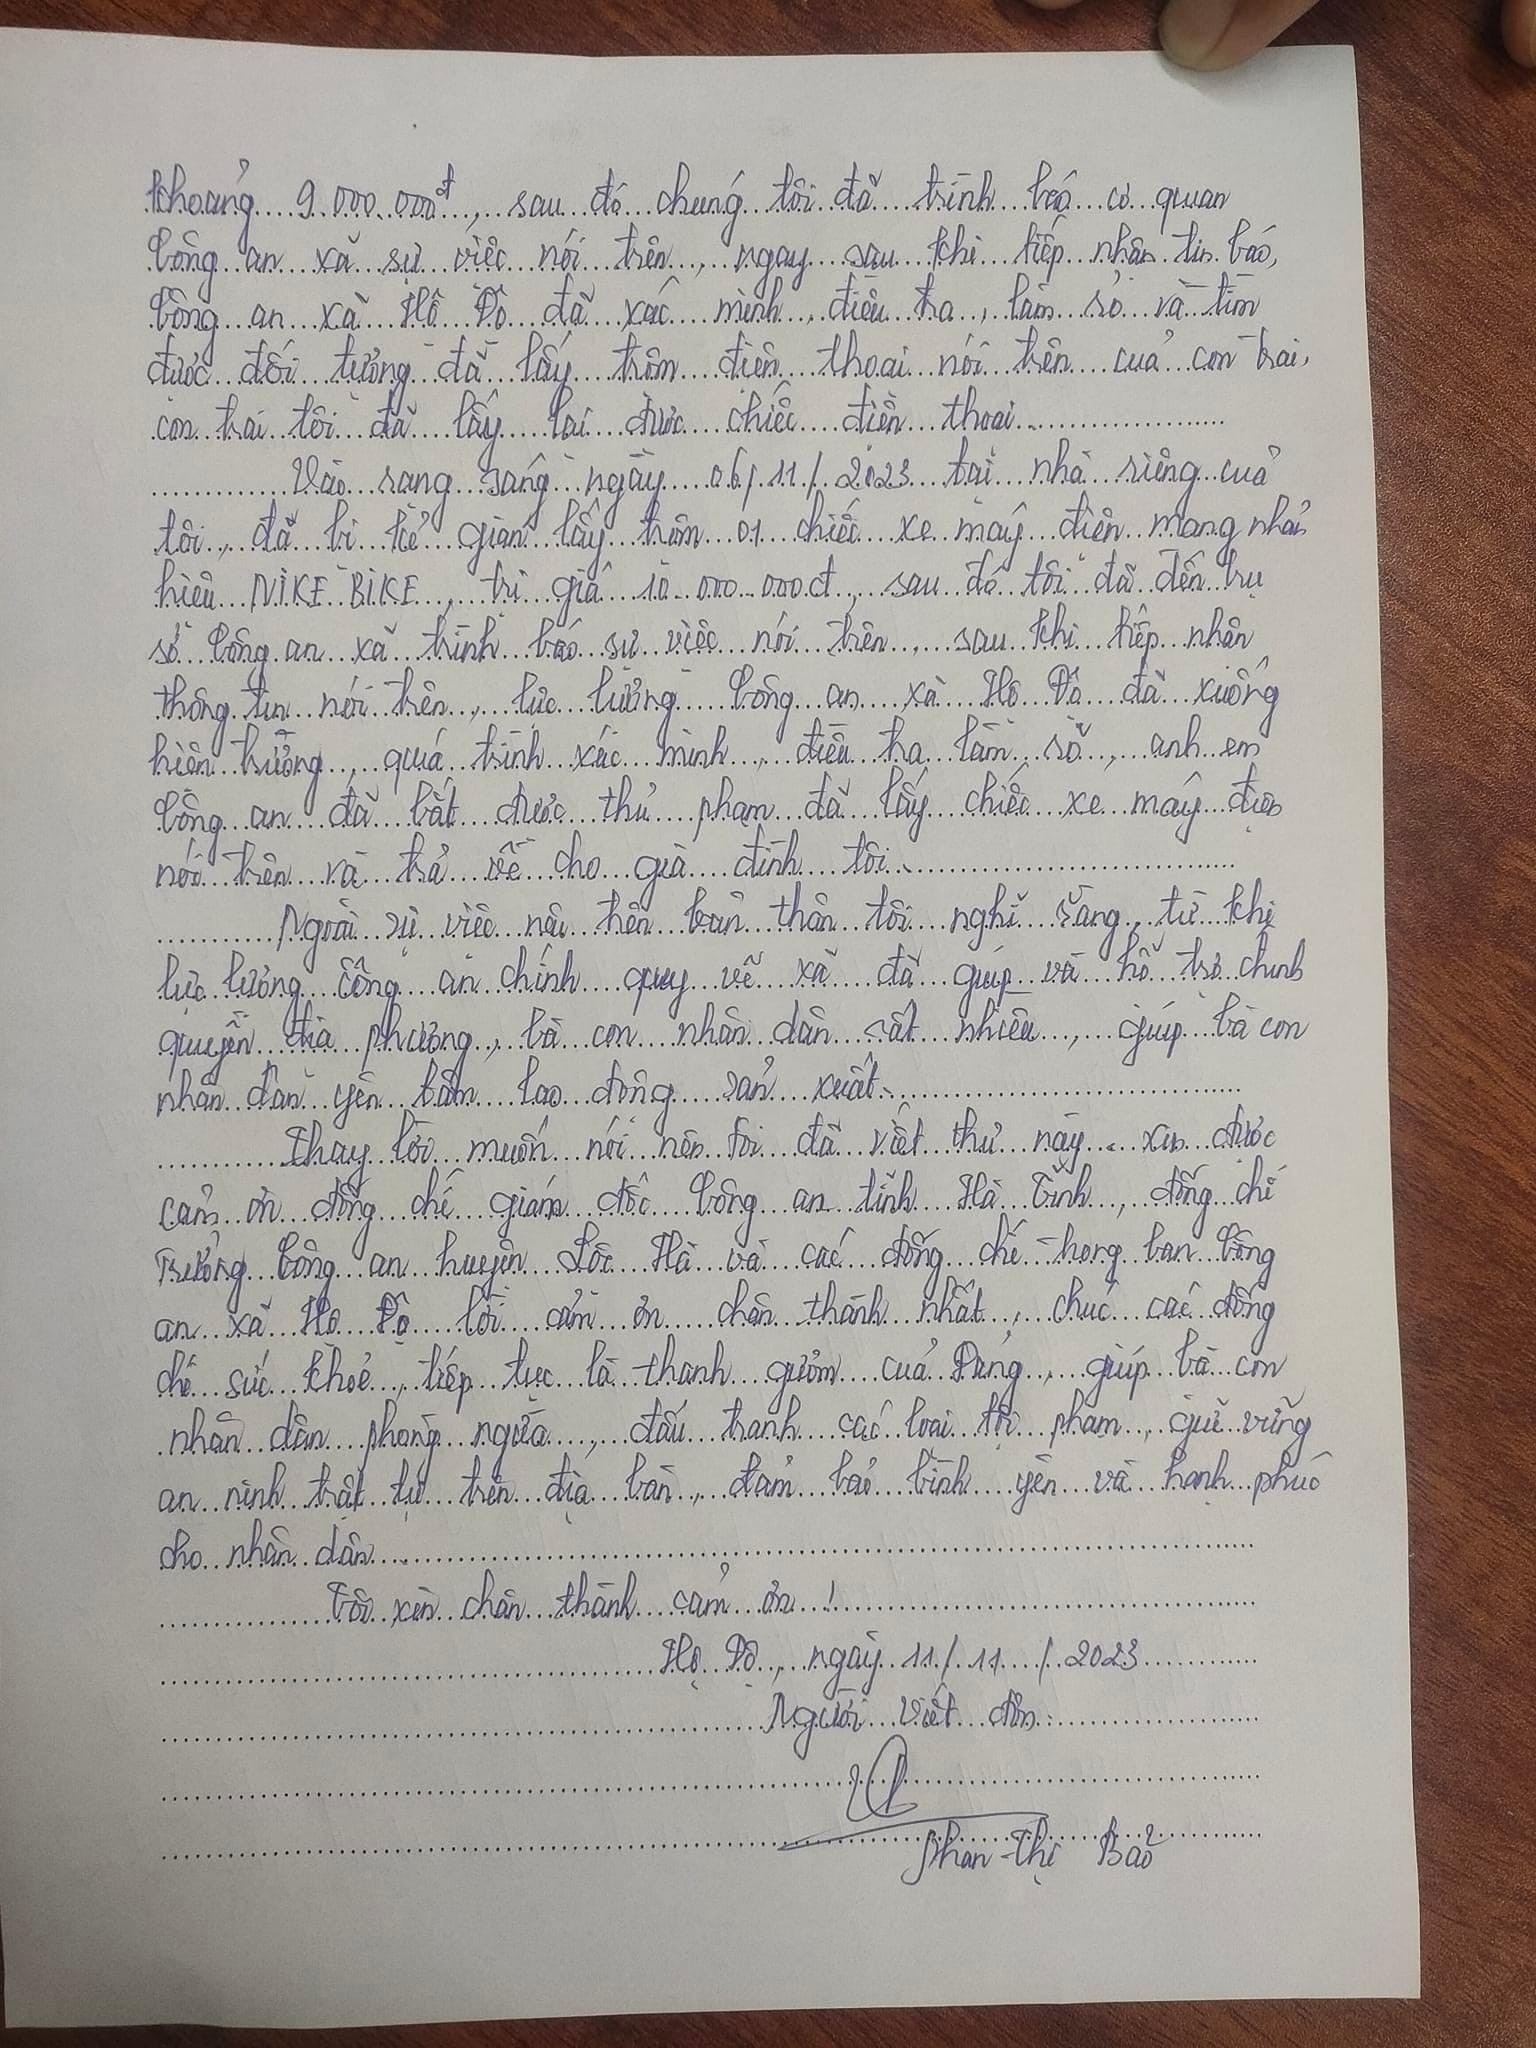 khoảng 9.000.000đ, sau đó chúng tôi đã trình báo cơ quan
Công an xã sự việc nói trên, ngay sau khi tiếp nhận tin báo,
Công an xã Hộ Độ đã xác minh, điều tra, làm rõ và tìm
được đối tượng đã lấy trộm điện thoại nói trên của con trai,
con trai tôi đã lấy lại được chiếc điện thoại.
Vào rạng sáng ngày 06/11/2023 tại nhà riêng của
tôi, đã bị kẻ gian lấy trộm 01 chiếc xe máy điện mang nhãn
hiệu NIKE BIKE, trị giá 10.000.000đ, sau đó tôi đã đến trụ
sở Công an xã trình báo sự việc nói trên, sau khi tiếp nhận
thông tin nói trên, lực lượng Công an xã Hộ Độ đã xuống
hiện trường, quá trình xác minh, điều tra làm rõ, anh em
Công an đã bắt được thủ phạm đã lấy chiếc xe máy điện
nói trên và trả về cho gia đình tôi.
Ngoài sự việc nêu trên bản thân tôi nghĩ rằng, từ khi
lực lượng Công an chính quy về xã đã giúp và hỗ trợ chính
quyền địa phương, bà con nhân dân rất nhiều, giúp bà con
nhân dân yên tâm lao động sản xuất.
Thay lời muốn nói nên tôi đã viết thư này. xin được
cảm ơn đồng chí giám đốc Công an tỉnh Hà Tĩnh, đồng chí
Trưởng Công an huyện Lộc Hà và các đồng chí trong ban Công
an xã Hộ Độ lời cảm ơn chân thành nhất, chúc các đồng
chí sức khỏe, tiếp tục là thanh gươm của Đảng, giúp bà con
nhân dân phòng ngừa, đấu tranh các loại tội phạm, giữ vững
an ninh trật tự trên địa bàn, đảm bảo bình yên và hạnh phúc
cho nhân dân.
Tôi xin chân thành cảm ơn!
Hộ Độ, ngày 11/11/2023
Người viết đơn
Phan Thị Bảo